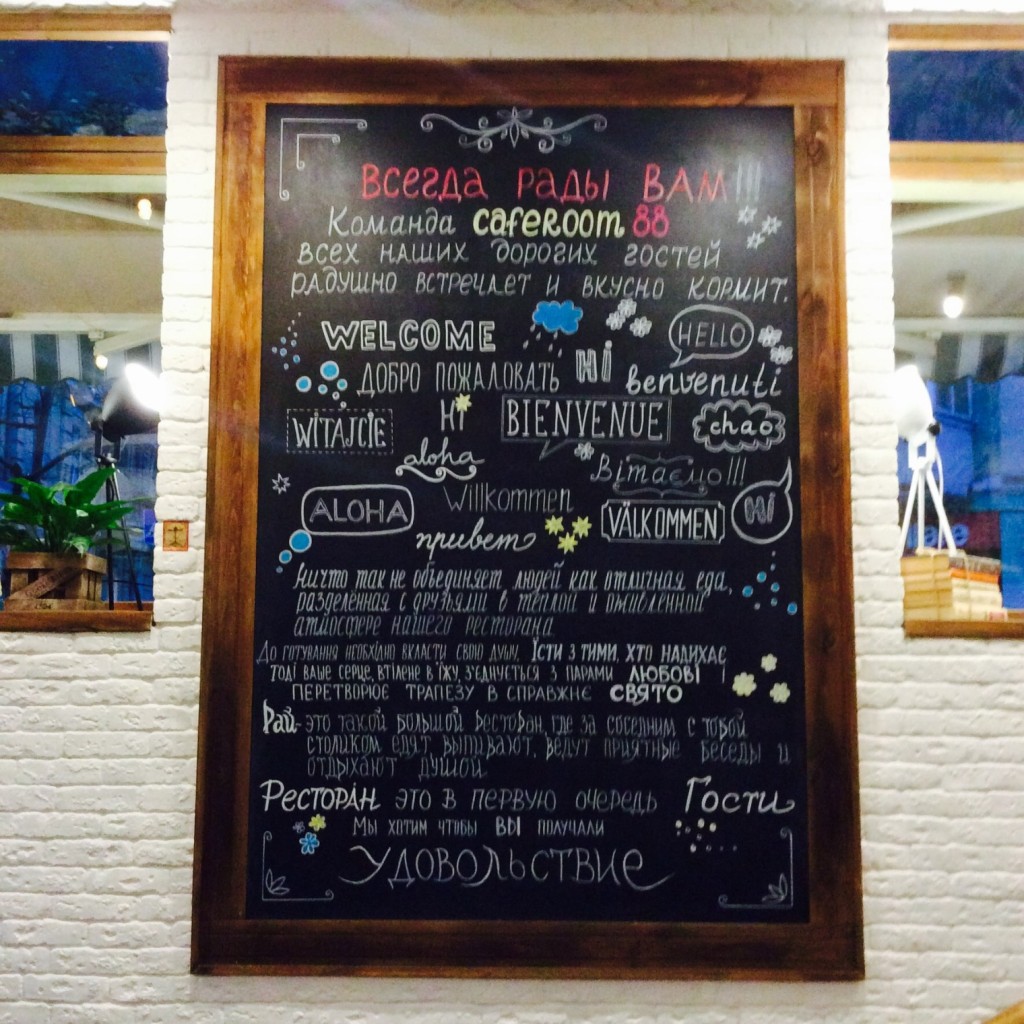 Всегда рады ВАМ!!!
Команда caferoom 88
всех наших дорогих гостей
радушно встречает и вкусно кормит.
WELCOME
HELLO
ДОБРО ПОЖАЛОВАТЬ
Hi
benvenuti
WITAJCIE
Hi
BIENVENUE
chao
aloha
Вітаємо!!!
ALOHA
Willkommen
VÄLKOMMEN
Hi
привет
Ничто так не объединяет людей как отличная еда,
разделенная с друзьями в теплой и оживленной
атмосфере нашего ресторана
До готування необхідно вкласти свою душу, Їсти з тими, хто надихає
тоді ваше серце, втілене в їжу, з'єднується з парами ЛЮБОВІ
і перетворює трапезу в справжнє СВЯТО
Рай- это такой большой ресторан, где за соседним с тобой
столиком едят, выпивают, ведут приятные беседы и
отдыхают душой
Ресторан это в первую очередь Гости
Мы хотим чтобы ВЫ получали
Удовольствие